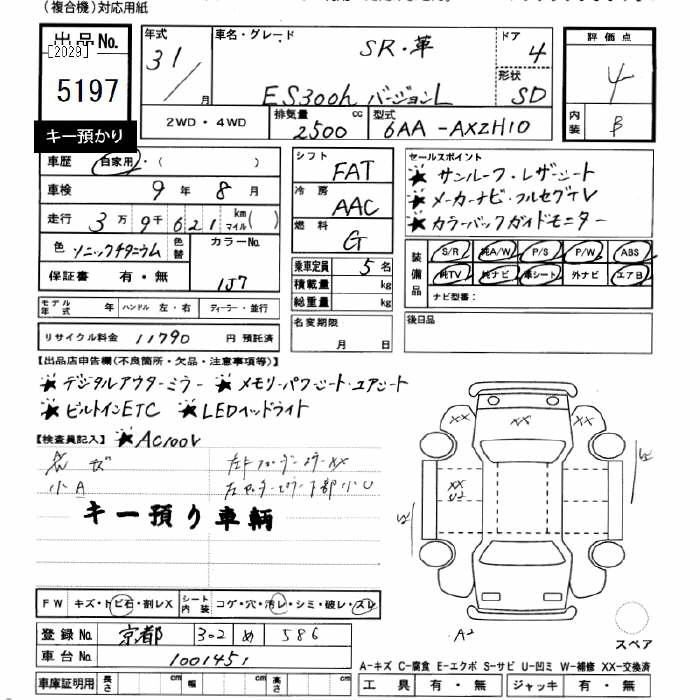 (複合機)対応用紙
出品No.
[2029]
5197
キー預かり
年式 31/ 月
車名・グレード SR・革
ES300h バージョンL
ドア 4
形状 SD
2WD・4WD
排気量 2500 cc
型式 6AA-AXZH10
評価点 4
内装 B
車歴 自家用・( )
車検 9年 8月
走行 3万9千621 km マイル( )
色 ソニックチタニウム 色替 カラーNo. 1J7
保証書 有・無
モデル年式 年 ハンドル 左・右 ディーラー・並行
リサイクル料金 11790 円 預託済
シフト FAT
冷房 AAC
燃料 G
乗車定員 5名
積載量 kg
総重量 kg
名変期限 月 日
セールスポイント
★サンルーフ・レザーシート
★メーカーナビ・フルセグTV
★カラーバックガイドモニター
装備品 S/R 純A/W P/S P/W ABS
純TV 純ナビ 革シート 外ナビ エアB
ナビ型番:
後日品
【出品店申告欄(不良箇所・欠品・注意事項等)】
★デジタルアウターミラー ★メモリーパワーシート・エアシート
★ビルトインETC ★LEDヘッドライト
【検査員記入】 ★AC100V
小A
キー預り車輌
XX XX XX
XX
U2
W
W
A2
FW キズ・トビ石・割レX シート内装 コゲ・穴・汚レ・シミ・破レ・スレ
登録No. 京都 302 め 586
車台No. 1001451
車庫証明用 長さ cm 幅 cm 高さ cm
スペア
A-キズ C-腐食 E-エクボ S-サビ U-凹ミ W-補修 XX-交換済
工具 有・無 ジャッキ 有・無